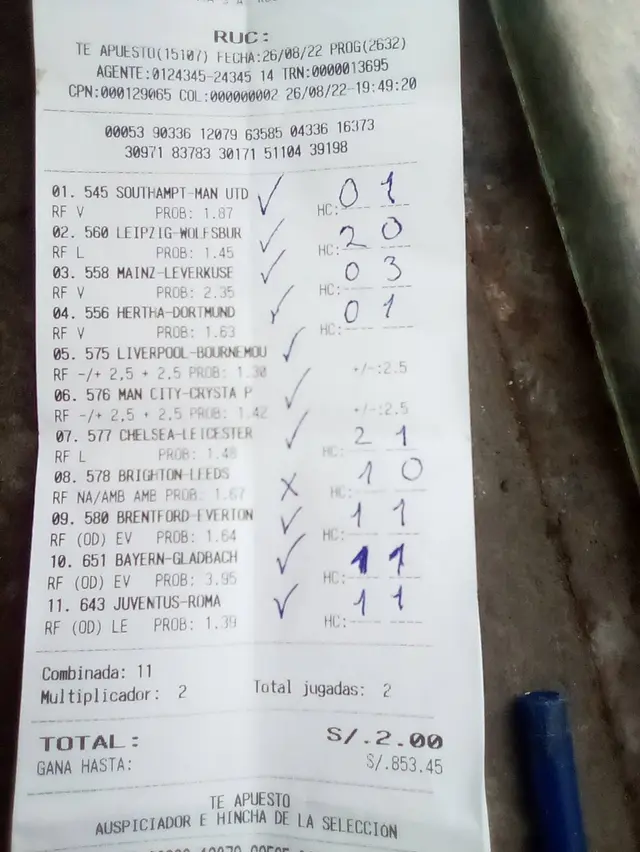 RUC:
TE APUESTO(15107) FECHA:26/08/22 PROG(2632)
AGENTE:0124345-24345 14 TRN:0000013695
CPN:000129065 COL:000000002 26/08/22-19:49:20
00053 90336 12079 63585 04336 16373
30971 83783 30171 51104 39198
01. 545 SOUTHAMPT-MAN UTD ✓ 0 1
RF V PROB: 1.87 HC:
02. 560 LEIPZIG-WOLFSBUR ✓ 2 0
RF L PROB: 1.45 HC:
03. 558 MAINZ-LEVERKUSE ✓ 0 3
RF V PROB: 2.35 HC:
04. 556 HERTHA-DORTMUND ✓ 0 1
RF V PROB: 1.63 HC:
05. 575 LIVERPOOL-BOURNEMOU ✓
RF -/+ 2,5 + 2,5 PROB: 1.30 +/-:2.5
06. 576 MAN CITY-CRYSTA P ✓
RF -/+ 2,5 + 2,5 PROB: 1.42 +/-:2.5
07. 577 CHELSEA-LEICESTER ✓ 2 1
RF L PROB: 1.48 HC:
08. 578 BRIGHTON-LEEDS X 1 0
RF NA/AMB AMB PROB: 1.67 HC:
09. 580 BRENTFORD-EVERTON ✓ 1 1
RF (OD) EV PROB: 1.64 HC:
10. 651 BAYERN-GLADBACH ✓ 1 1
RF (OD) EV PROB: 3.95 HC:
11. 643 JUVENTUS-ROMA ✓ 1 1
RF (OD) LE PROB: 1.39 HC:
Combinada: 11
Multiplicador: 2 Total jugadas: 2
TOTAL: S/.2.00
GANA HASTA: S/.853.45
TE APUESTO
AUSPICIADOR E HINCHA DE LA SELECCIÓN